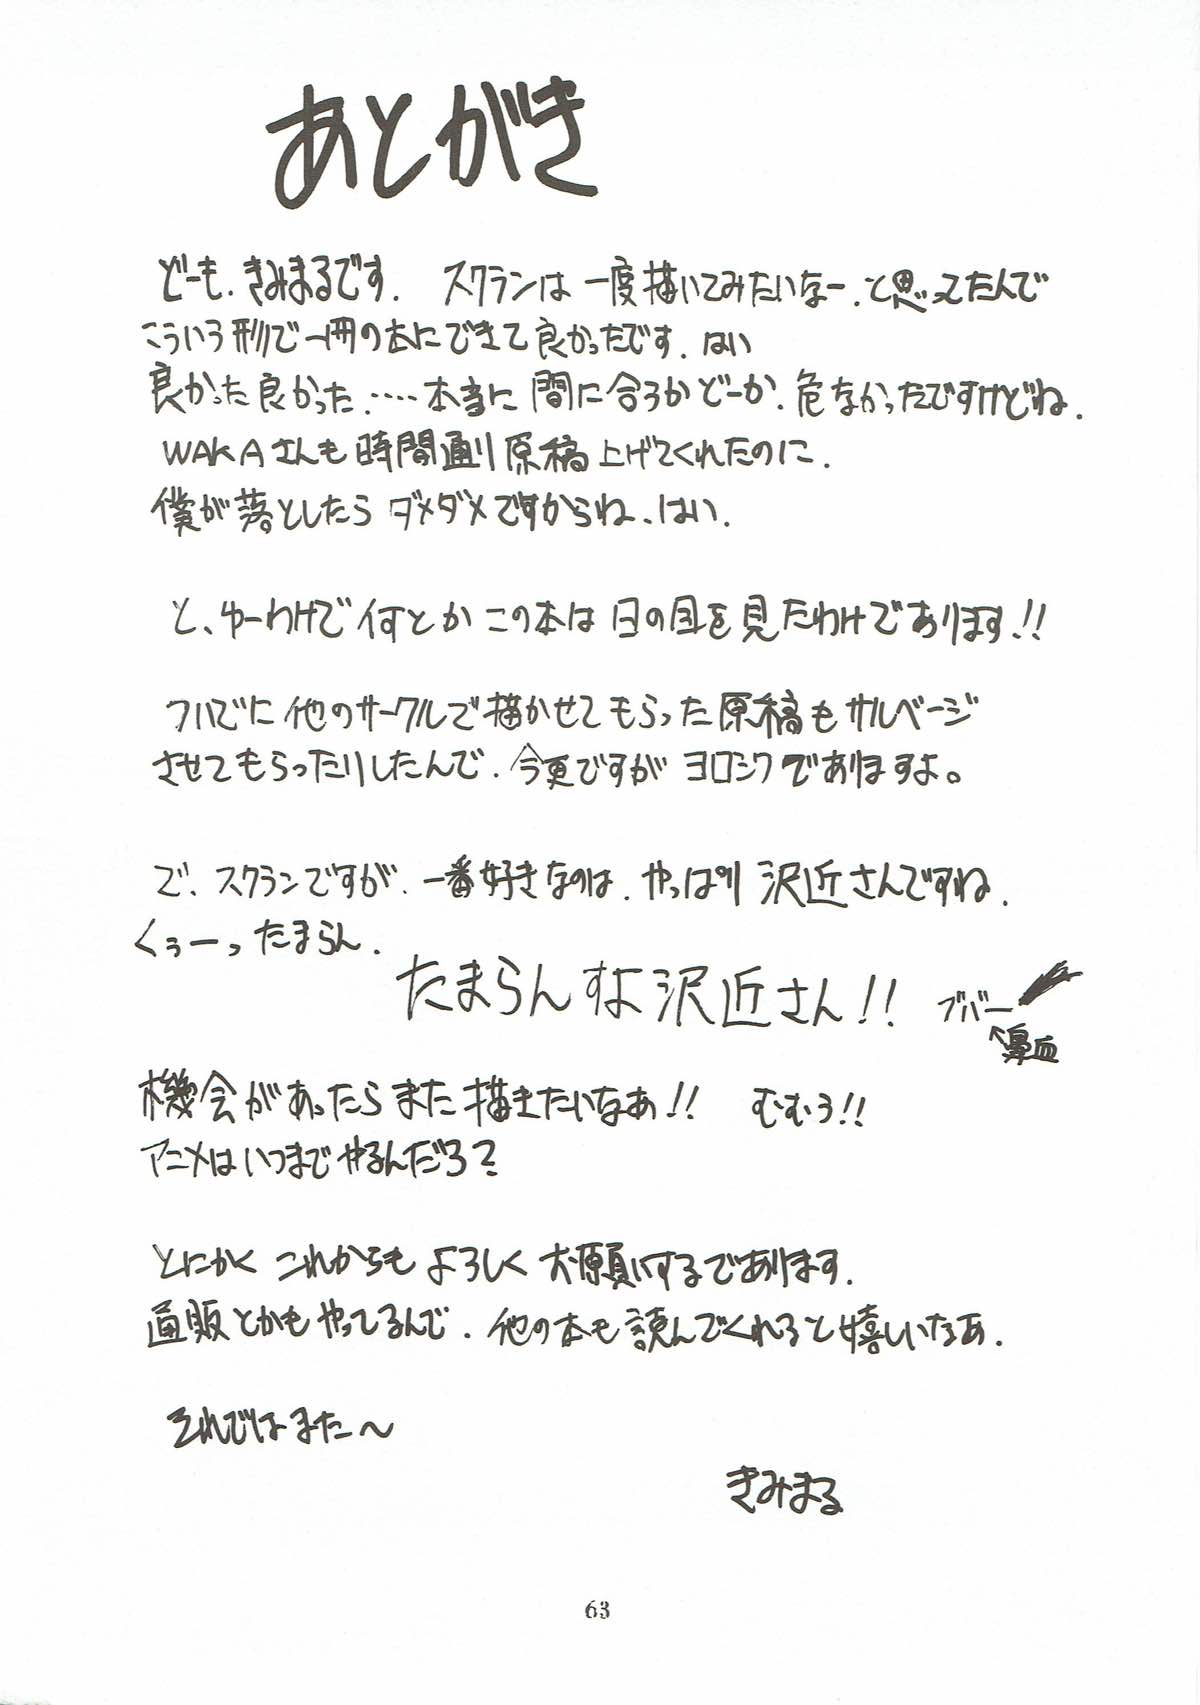 あとがき
どーも、きみまるです. スクランは一度描いてみたいなー、と思ってたんで
こういう形で一冊の本にできて良かったです、はい
良かった良かった、‥‥本当に間に合うかどーか、危なかったですけどね、
WAKAさんも時間通り原稿上げてくれたのに、
僕が落としたらダメダメですからね、はい、
と、ゆーわけで何とかこの本は日の目を見たわけであります!!
ついでに他のサークルで描かせてもらった原稿もサルベージ
させてもらったりしたんで、今更ですがヨロシクでありますよ。
で、スクランですが、一番好きなのは、やっぱり沢近さんですね、
くぅーったまらん、
たまらんすよ沢近さん!! ブバー
←鼻血
機会があったらまた描きたいなあ!! むむう!!
アニメはいつまでやるんだろ?
とにかくこれからもよろしくお願いするであります、
通販とかもやってるんで、他の本も読んでくれると嬉しいなあ、
それではまた〜
きみまる
63